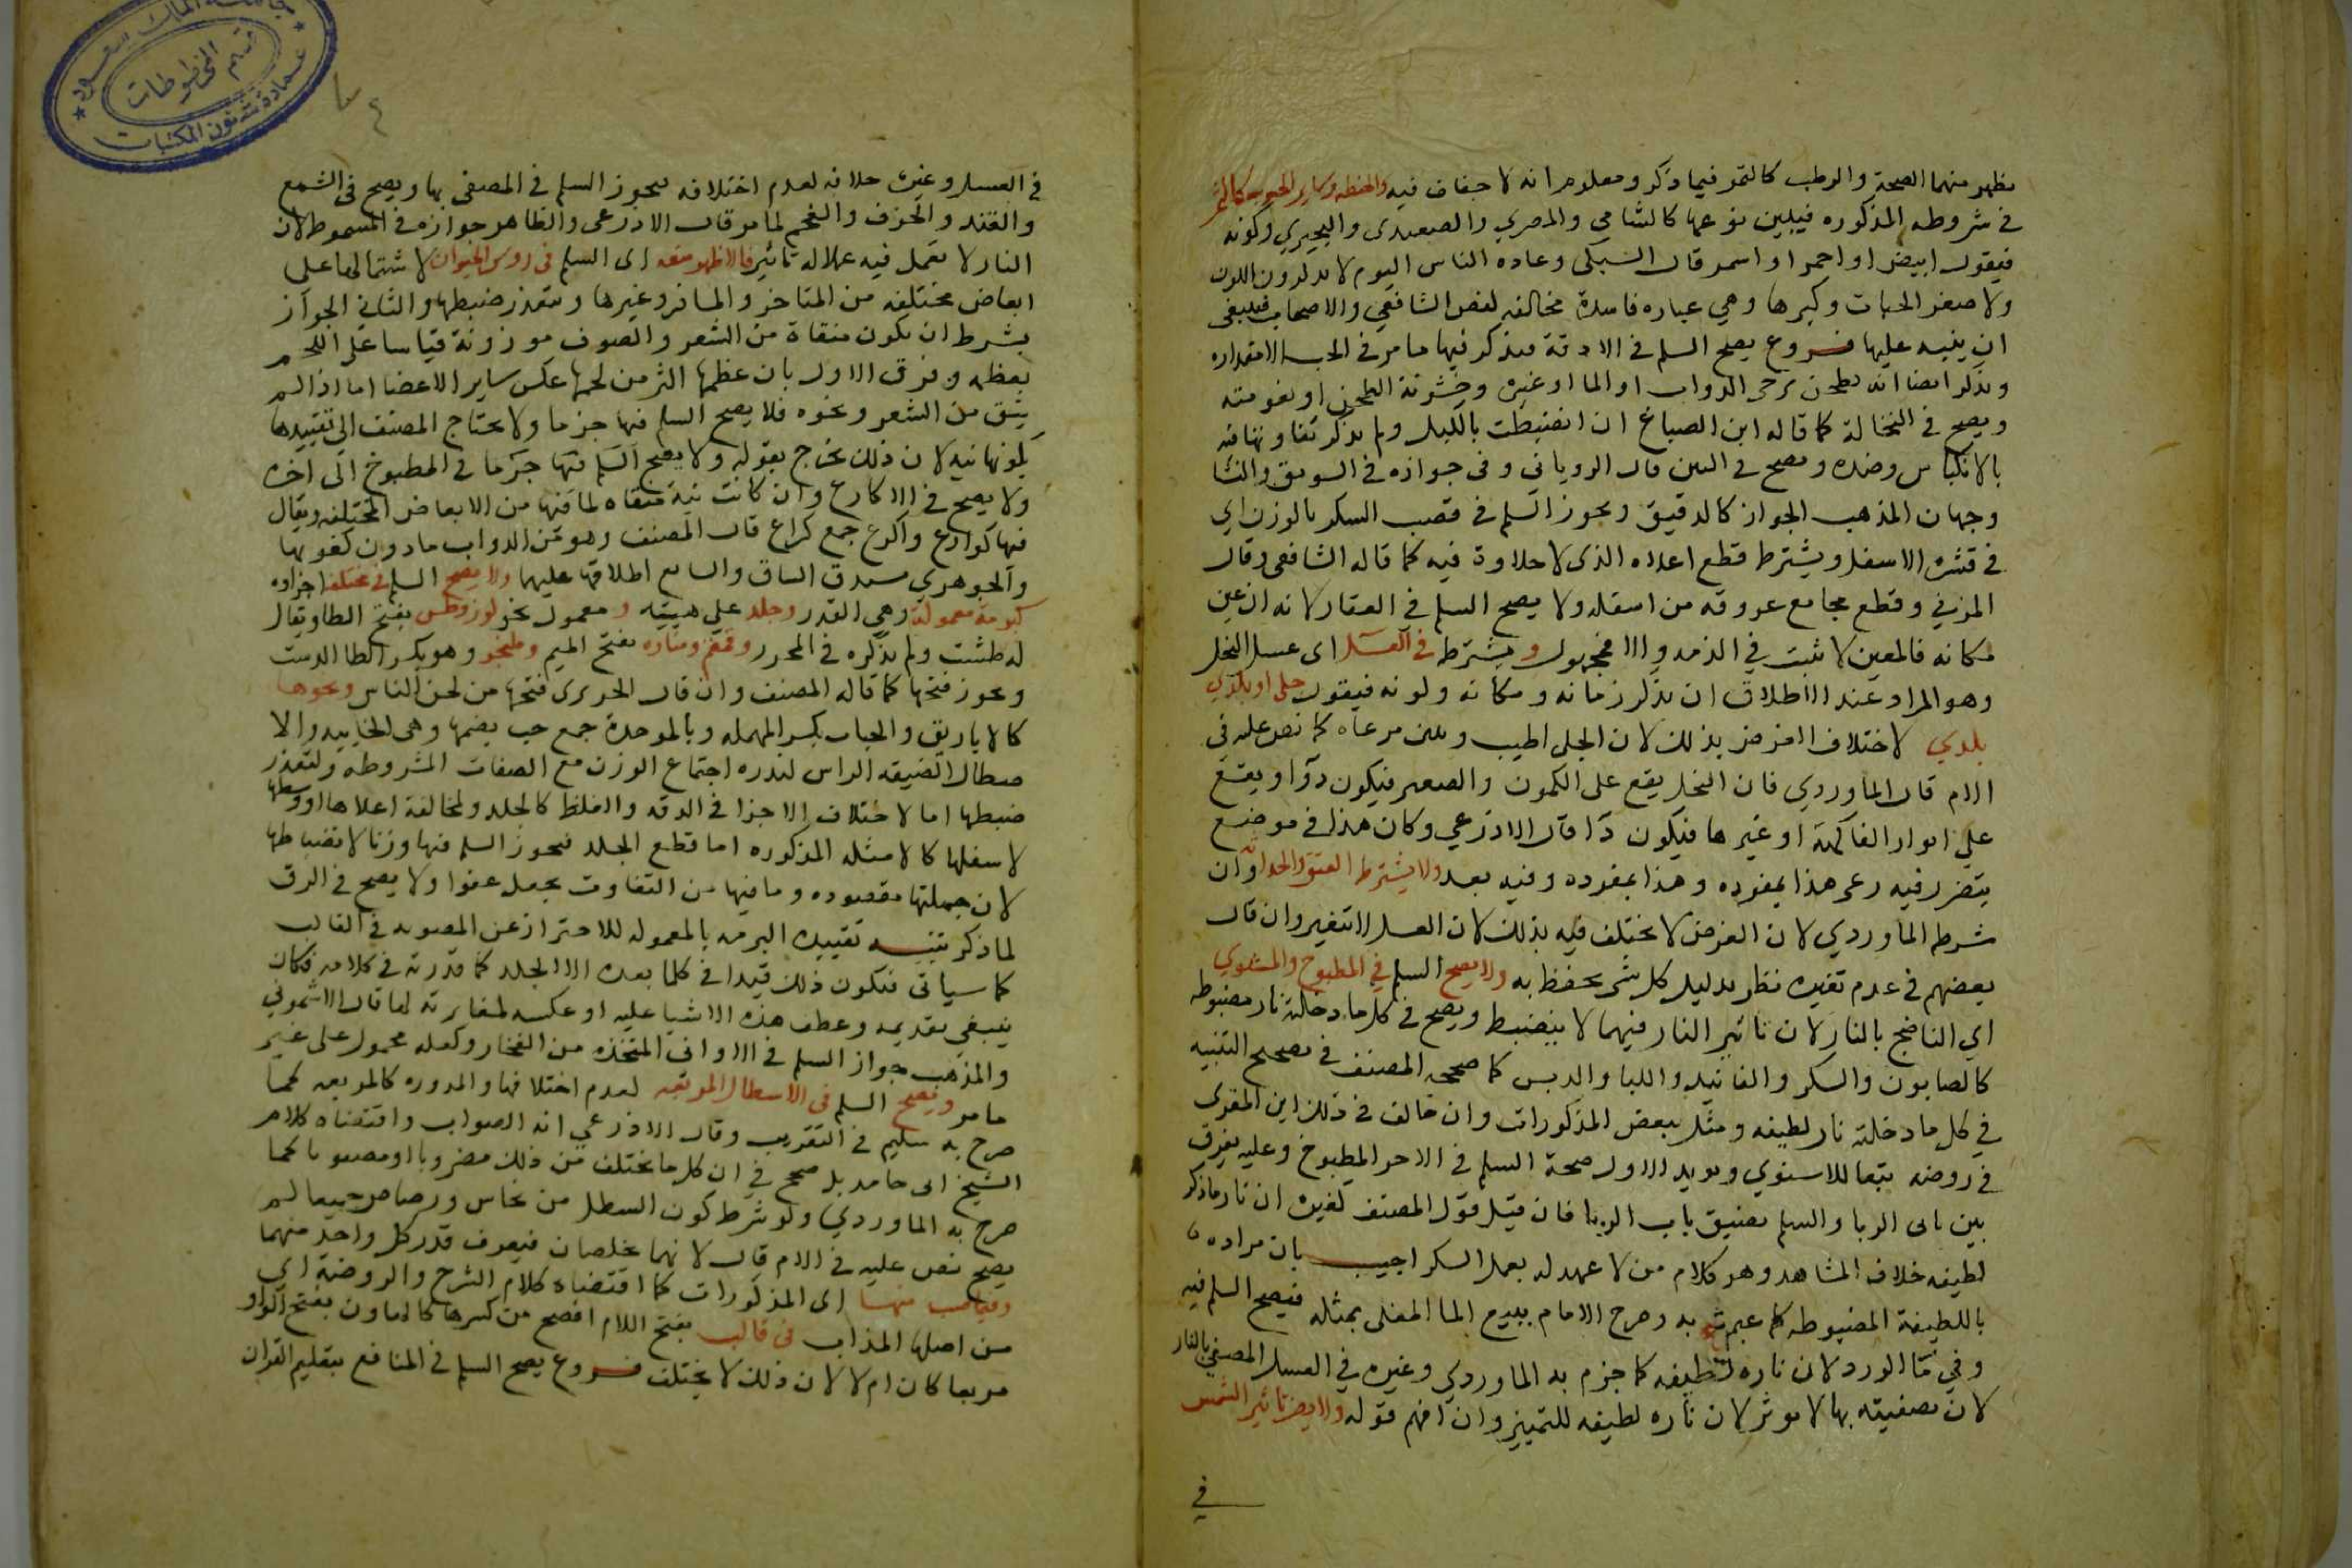 يظهر منهما الصحة والرطب كالتمر فيما ذكر ومعلوم انه لا جفاف فيه والحنطه وساير الحبوب كالتمر
في شروطه المذكوره فيبين نوعها كالشامي والمصري والصعيدى والبحيري وكونه
فيقول ابيض او احمر او اسمر قال السبكى وعاده الناس اليوم لا يذكرون اللون
ولا صغر الحبات وكبرها وهي عباره فاسدة مخالفه لنص الشافعي والاصحاب فينبغى
ان ينبه عليها فروع يصح السلم في الادقة فيذكر فيها ما مر في الحب الا مقداره
ويذكر ايضا انه يطحن برحى الدواب او الما او غيره وخشونة الطحن او نعومته
ويصح في النخالة كما قاله ابن الصباغ ان انضبطت بالكيل ولم يكثر تفاوتها فيه
بالانكباس وضده ويصح في التبن قال الروياني وفى جوازه في السويق والنشا
وجهان المذهب الجواز كالدقيق ويجوز السلم في قصب السكر بالوزن اي
في قشره الاسفل ويشترط قطع اعلاه الذى لا حلاوة فيه كما قاله الشافعى وقال
المزني وقطع مجامع عروقه من اسفله ولا يصح السلم في العقار لانه ان عين
مكانه فالمعين لا يثبت في الذمه والا فمجهول و يشترط في العسل اى عسل النحل
وهو المراد عند الاطلاق ان يذكر زمانه ومكانه ولونه فيقول جبلي او بلدي
بلدي لاختلاف الغرض بذلك لان الجبلى اطيب ويبين مرعاه كما نص عليه في
الام قال الماوردي فان النحل يقع على الكمون والصعتر فيكون دوا ويقع
على انوار الفاكهة او غيرها فيكون دا قال الاذرعي وكان هذا في موضع
يتصور فيه رعى هذا بمفرده وهذا بمفرده وفيه بعد ولا يشترط العتق والحداثه وان
شرطه الماوردي لان الغرض لا يختلف فيه بذلك لان العسل لا يتغير وان قال
بعضهم في عدم تغيره نظر بدليل كل شي يحفظ به ولا يصح السلم في المطبوخ والمشوي
اي الناضج بالنار لان تاثير النار فيهما لا ينضبط ويصح في كل ما دخلته نار مضبوطه
كالصابون والسكر والفانيد واللبا والدبس كما صححه المصنف في تصحيح التنبيه
في كل ما دخلته نار لطيفه ومثل ببعض المذكورات وان خالف في ذلك ابن المقرى
في روضه تبعا للاسنوي ويويد الاول صحة السلم في الاجر المطبوخ وعليه يفرق
بين بابى الربا والسلم بضيق باب الربا فان قيل قول المصنف كغيره ان نار ما ذكر
لطيفه خلاف المشاهد وهو كلام من لا عهد له بعمل السكر اجيب بان مراده
باللطيفة المضبوطه كما عبرت به وصرح الامام ببيع الما المغلى بمثله فيصح السلم فيه
وفي ما الورد لان ناره لطيفه كما جزم به الماوردي وغيره في العسل المصفى بالنار
لان تصفيته بها لا يوثر لان ناره لطيفه للتمييز وان افهم قوله ولا يضر تاثير الشمس
في
في العسل وغيره خلافه لعدم اختلافه فيجوز السلم في المصفى بها ويصح في الشمع
والقند والخزف والفحم لما مر قال الاذرعى والظاهر جوازه في المسموط لان
النار لا تعمل فيه عملا له تاثير فالاظهر منعه اى السلم في روس الحيوان لاشتمالها على
ابعاض مختلفه من المناخر والمشافر وغيرها ويتعذر ضبطها والثاني الجواز
بشرط ان تكون منقاة من الشعر والصوف موزونة قياسا على اللحم
بعظمه وفرق الاول بان عظمها اكثر من لحمها عكس ساير الاعضا اما اذا لم
ينق من الشعر ونحوه فلا يصح السلم فيها جزما ولا يحتاج المصنف الى تقييدها
بكونها نيه لان ذلك يخرج بقوله ولا يصح السلم فيها جزما في المطبوخ الى اخره
ولا يصح في الاكارع وان كانت نية منقاه لما فيها من الابعاض المختلفه ويقال
فيها كوارع واكرع جمع كراع قال المصنف وهو من الدواب ما دون كعوبها
والجوهري مستدق الساق والشايع اطلاقها عليهما ولا يصح السلم في مختلف اجزاوه
كبرمة معمولة وهي القدر وجلد على هيئته و معمول نحو كوز وطس بفتح الطا ويقال
له طشت ولم يذكره في المحرر وقمقم ومناره بفتح الميم وطنجير وهو بكسر الطا الدست
ويجوز فتحها كما قاله المصنف وان قال الحريرى فتحها من لحن الناس ونحوها
كالاباريق والحباب بكسر المهمله وبالموحدة جمع حب بضمها وهى الخابيه والا
صطال الضيقه الراس لندره اجتماع الوزن مع الصفات المشروطه ولتعذر
ضبطها اما لاختلاف الاجزا في الدقه والغلظ كالجلد ولمخالفة اعلاها او وسطها
لاسفلها كالامثله المذكوره اما قطع الجلد فيجوز السلم فيها وزنا لانضباطها
لان جملتها مقصوده وما فيها من التفاوت يجعل عفوا ولا يصح في الرق
لما ذكر تنبيه تقييده البرمه بالمعموله للاحتراز عن المصبوبه في القالب
كما سياتى فيكون ذلك قيدا في كلما بعده الا الجلد كما قدرته في كلامه فكان
ينبغي تقديمه وعطف هذه الاشيا عليه او عكسه لمغايرته لها قال الاشموني
والمذهب جواز السلم في الاوانى المتخذه من الفخار وكعله محمول على غير
ما مر ويصح السلم في الاسطال المربعه لعدم اختلافها والمدوره كالمربعه كما
صرح به سليم في التقريب وقال الاذرعي انه الصواب واقتضاه كلام
الشيخ ابى حامد بل صحح في ان كل ما يختلف من ذلك مضروبا او مصبوبا كما
صرح به الماوردي ولو شرط كون السطل من نحاس ورصاص جميعا لم
يصح نص عليه في الام قال لانهما يخلصان فيعرف قدر كل واحد منهما
وفيما صب منها اى المذكورات كما اقتضاه كلام الشرح والروضة اي
من اصلها المذاب في قالب بفتح اللام افصح من كسرها كالهاون بفتح الواو
مربعا كان ام لا لان ذلك لا يختلف فروع يصح السلم في المنافع بتعليم القران